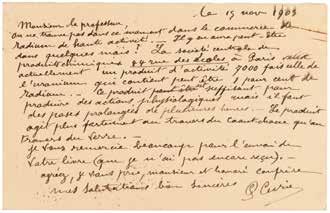 le 15 nov 1903
Monsieur le professeur
on ne trouve pas en ce moment dans le commerce de
radium de haute activité. — Il y en aura peut être
dans quelques mois ! La société centrale de
produits chimiques 44 rue des écoles à Paris vend
actuellement un produit d'activité 7000 fois celle de
l'uranium qui contient peut être 1 pour cent de
Radium. — Ce produit peut être suffisant pour
produire des actions physiologiques mais il faut
des poses prolongées de plusieurs heures. Le produit
agit plus fortement au travers du caoutchouc qu'au
travers du verre.
je vous remercie beaucoup pour l'envoi de
votre livre (que je n'ai pas encore reçu). —
agréez, je vous prie, monsieur et honoré confrère
mes salutations bien sincères
P. Curie